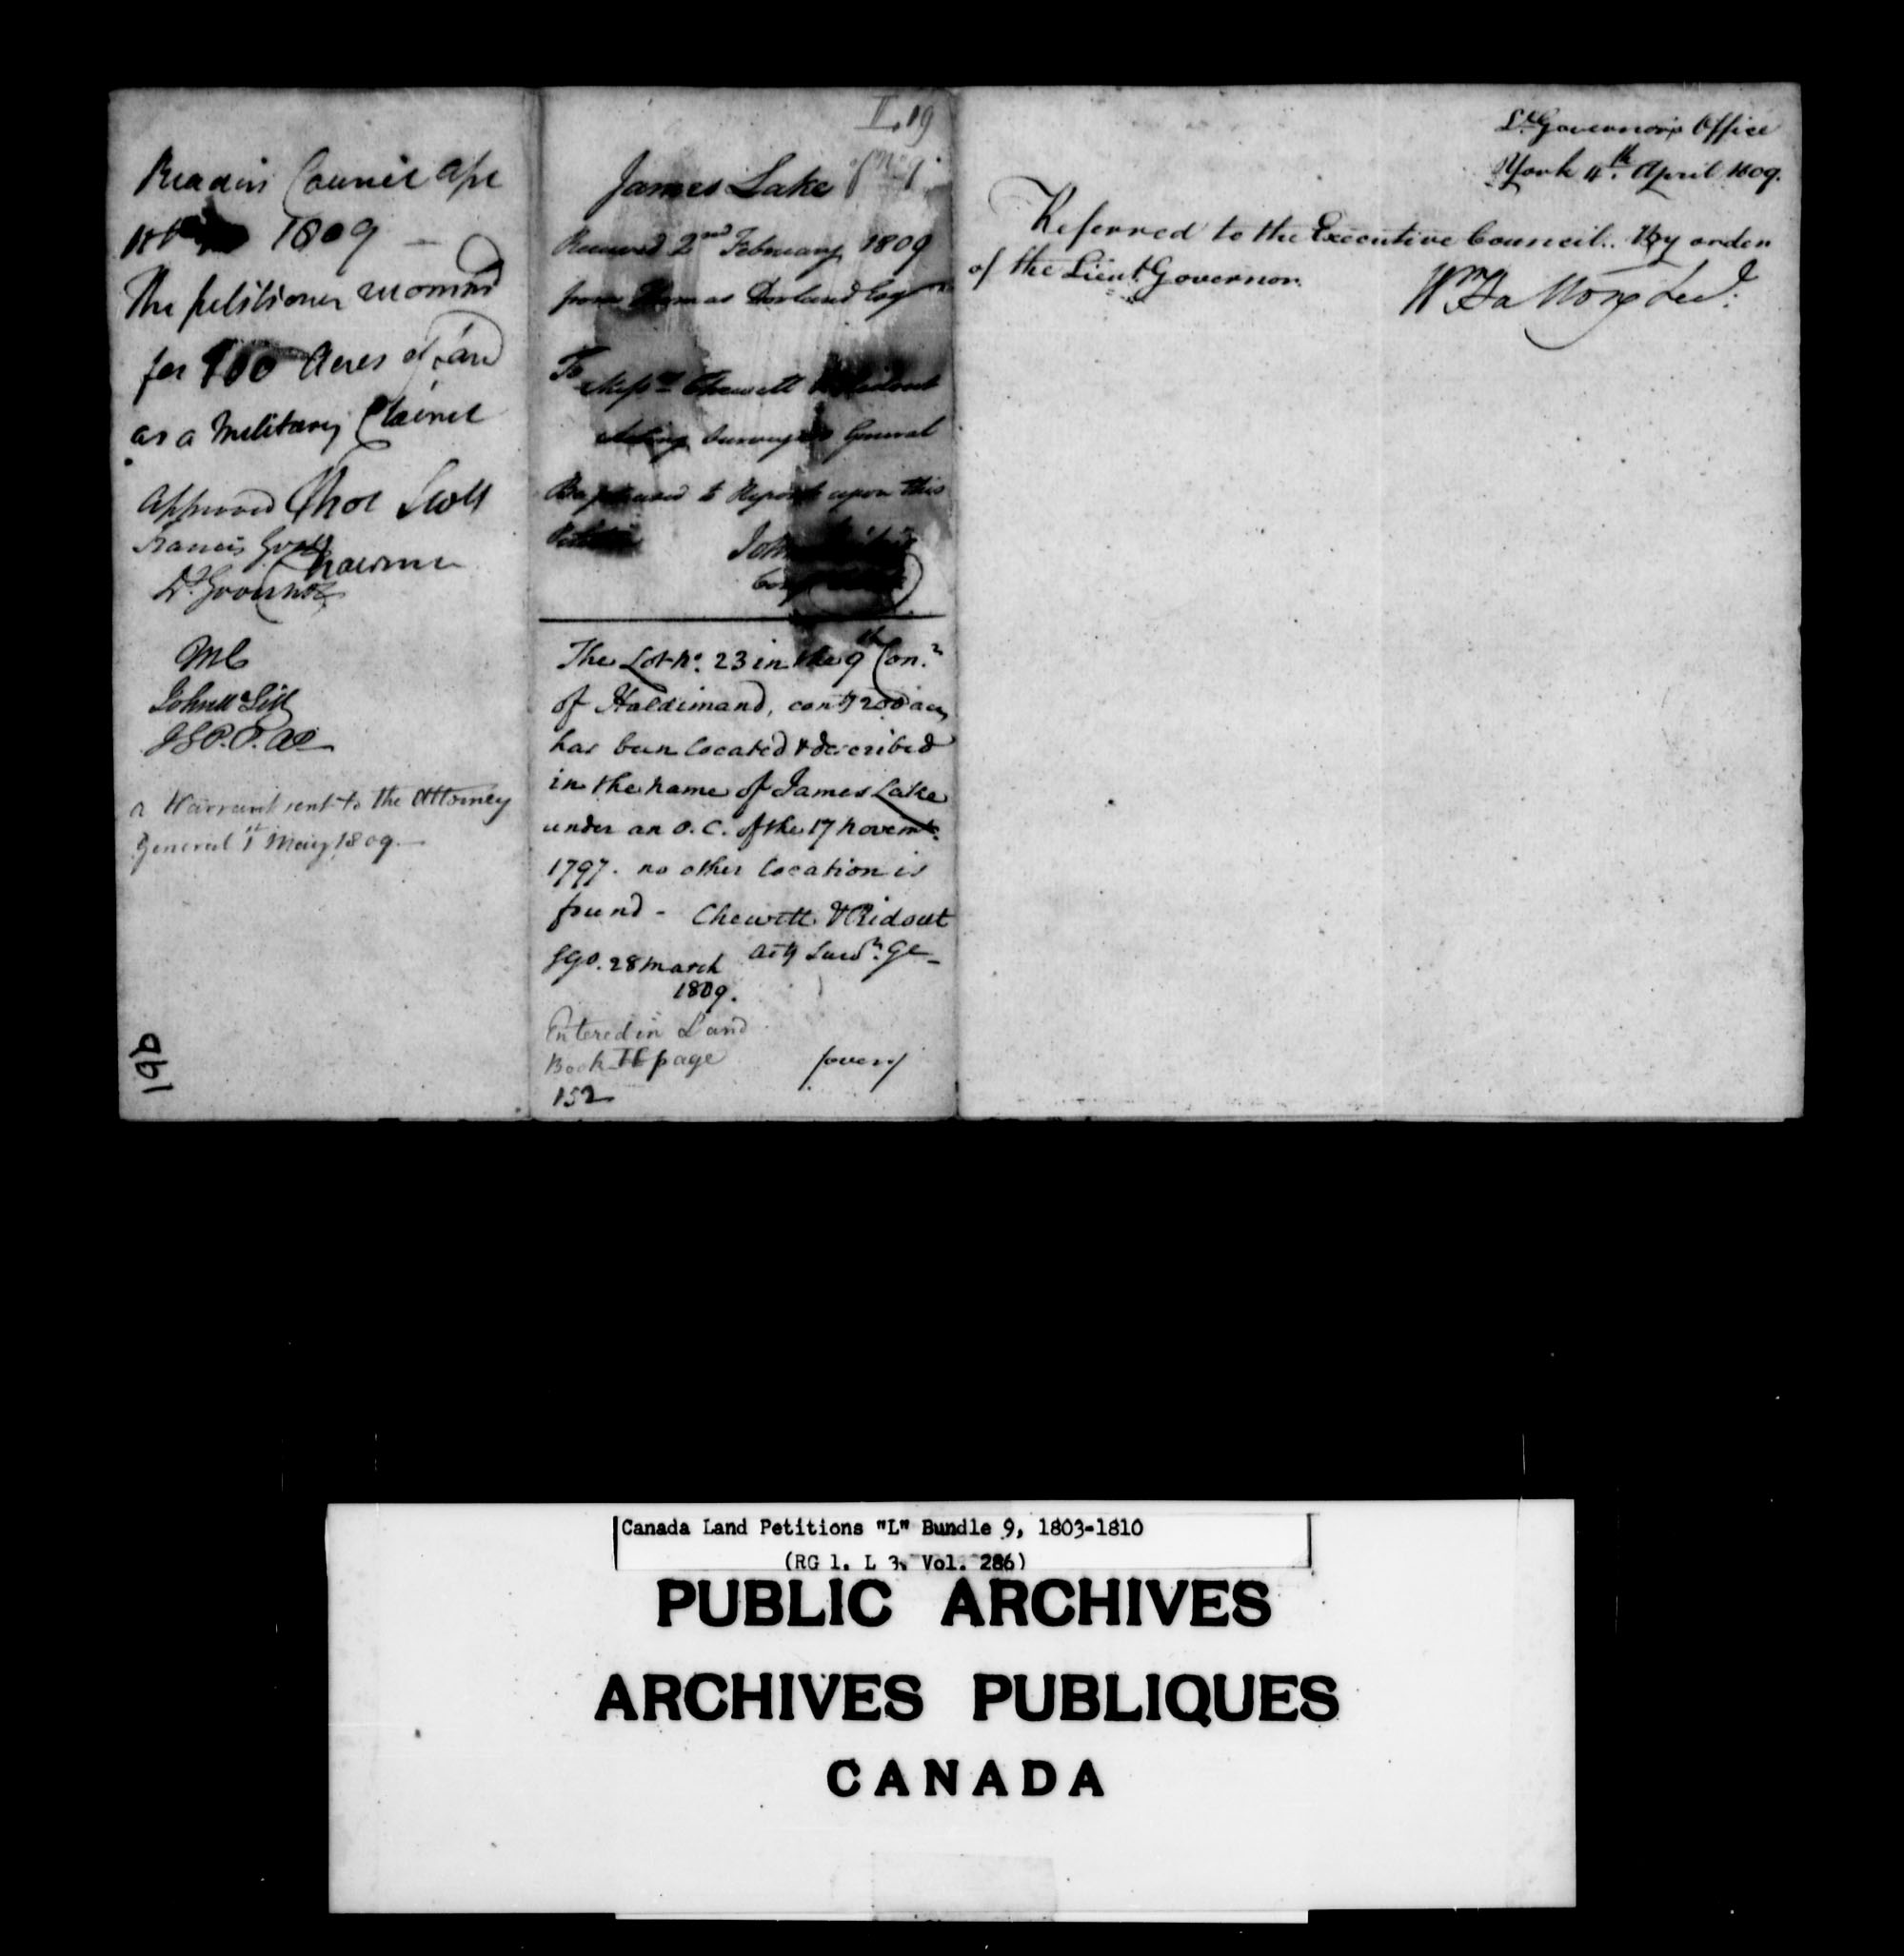 Read in Council Apl
1809 —
The petitioner recommd
for 100 Acres of Land
as a Military Claimt
Approved Thos Scott
Francis Gore Chairman
Lt. Governor
MC
John McGill
J S P. P. AC
a Warrant sent to the Attorney
General 1st May 1809. —
19b
L 19
No 9
James Lake
Received 2nd February 1809
from Thomas Dorland Esqr
To
Messrs Chewett & Ridout
Acting Surveyors General
Be pleased to Report upon this
Petition John
The Lot No. 23 in the 9th Con.n
of Haldimand, contg 200 acs
has been located & described
in the name of James Lake
under an O. C. of the 17 Novemb.
1797. no other location is
found - Chewett & Ridout
SGO. 28 March Actg Survrs Gl —
1809.
Entered in Land
Book page
152
(over)
Lt. Governor's Office
York 4th April 1809.
Referred to the Executive Council. By order
of the Lieut. Governor.
Wm Halton Secy.
Canada Land Petitions "L" Bundle 9, 1803-1810
(RG 1, L 3, Vol. 286)
PUBLIC ARCHIVES
ARCHIVES PUBLIQUES
CANADA